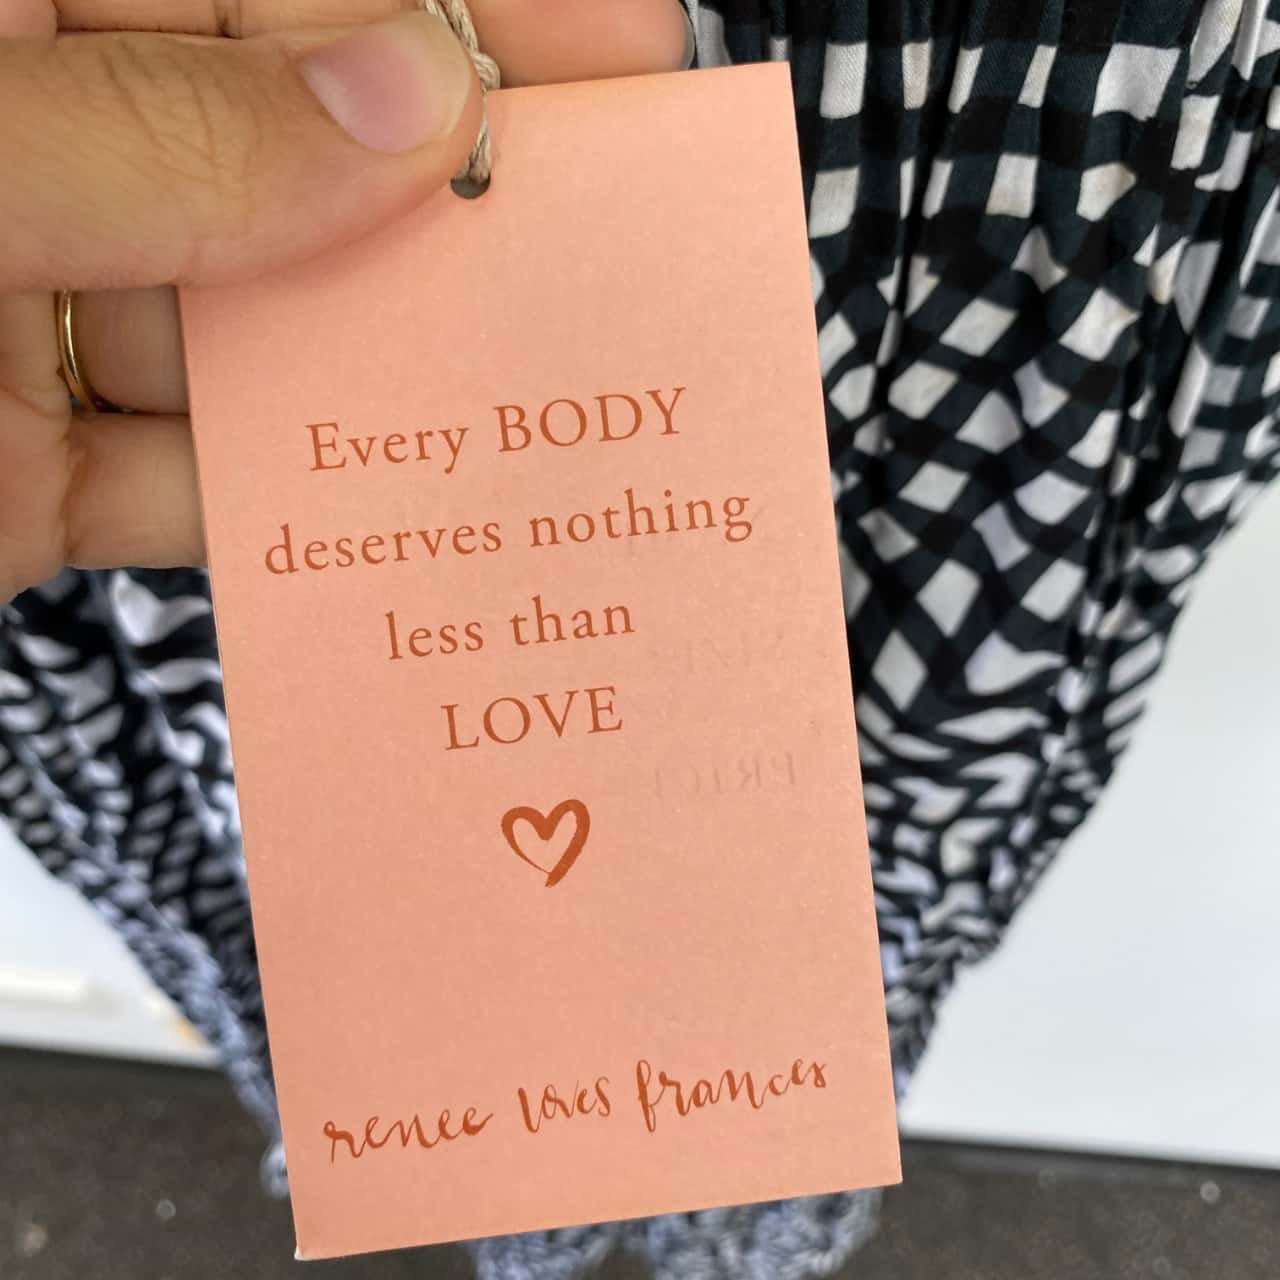 Every BODY
deserves nothing
less than
LOVE
renee loves frances